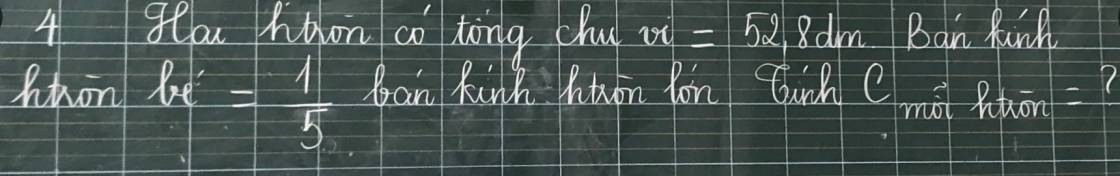 4 Hai htròn có tổng chu vi = 52,8dm. Bán kính
htròn bé = 1/5 bán kính htròn lớn Tính C mỗi htròn = ?